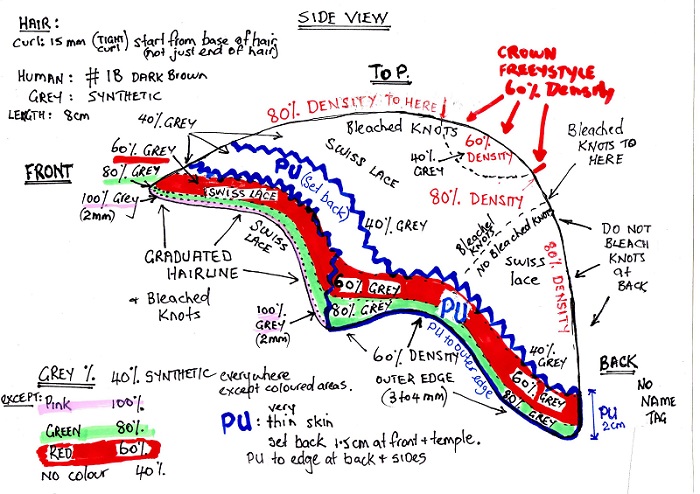 SIDE VIEW
HAIR:
Curl: 15 mm (TIGHT curl) start from base of hair
(not just end of hair)
HUMAN: # 1B DARK BROWN
GREY: SYNTHETIC
LENGTH: 8cm
TOP.
CROWN
FREEYSTYLE
60% Density
80% DENSITY TO HERE
40% GREY
Bleached KNOTS
60% DENSITY
Bleached
KNOTS TO
HERE
60% GREY
80% GREY
100% Grey
(2mm)
FRONT
PU (Set back)
SWISS LACE
40% GREY
80% DENSITY
SWISS LACE
SWISS LACE
40% GREY
Bleached
KNOTS
NO Bleached Knots
SWISS
lace
80% DENSITY
DO NOT
BLEACH
KNOTS
at
BACK
GRADUATED
HAIRLINE
& Bleached
KNOTS
100%
GREY
(2mm)
60% GREY
80% GREY
PU
PU to outer edge
60% DENSITY
OUTER EDGE
(3 to 4 mm)
40% GREY
60% GREY
80% GREY
BACK
NO
NAME
TAG
PU
2cm
GREY %. 40% SYNTHETIC everywhere
except coloured areas.
EXCEPT:
Pink 100%
GREEN 80%
RED 60%
NO COLOUR 40%
PU: very thin skin
set back 1.5cm at front + temple.
PU to edge at back + sides